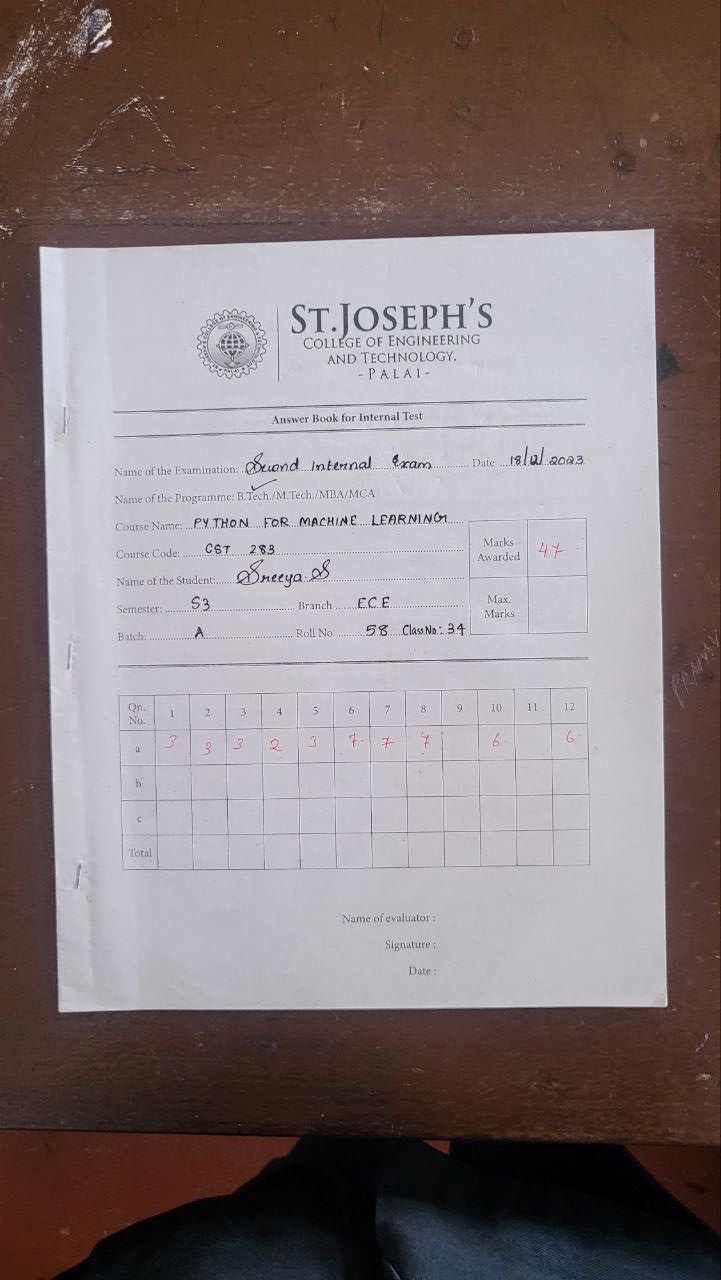 ST.JOSEPH'S
COLLEGE OF ENGINEERING
AND TECHNOLOGY,
- PALAI -
Answer Book for Internal Test
Name of the Examination: Second Internal Exam Date 18/12/2023
Name of the Programme: B.Tech./M.Tech./MBA/MCA
Course Name: PYTHON FOR MACHINE LEARNING
Course Code: CST 283
Marks Awarded 47
Name of the Student: Sneeya S
Semester: S3 Branch ECE
Max. Marks
Batch: A Roll No. 58 Class No: 34
Qn. No. 1 2 3 4 5 6 7 8 9 10 11 12
a 3 3 3 2 3 7 7 7 6 6
b
c
Total
Name of evaluator :
Signature :
Date :